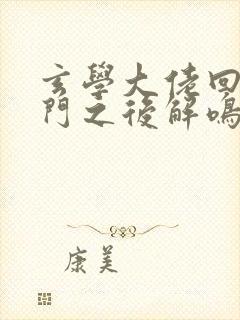 玄學大佬回
門之後解鳴
康美